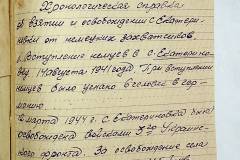 Хронологическая справка
о взятии и освобождении с. Екатери-
новки от немецких захватчиков.
Вступление немцев в с. Екатерино-
вку 14 августа 1941 года. При вступлении
немцев было угнано в
манию.
марта 1944 г. с. Екатериновка была
освобождена войсками 3го Украин-
ского фронта. За освобождение села